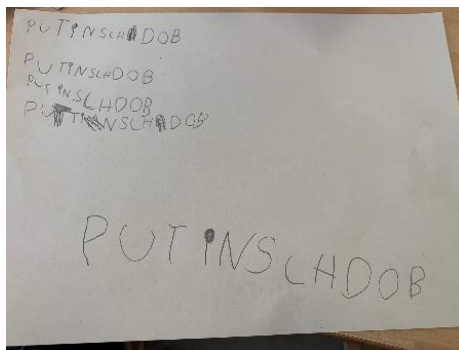 PUTINSCHDOB
PUTINSCHDOB
PUTINSCHDOB
PUTINSCHDOB
PUTINSCHDOB